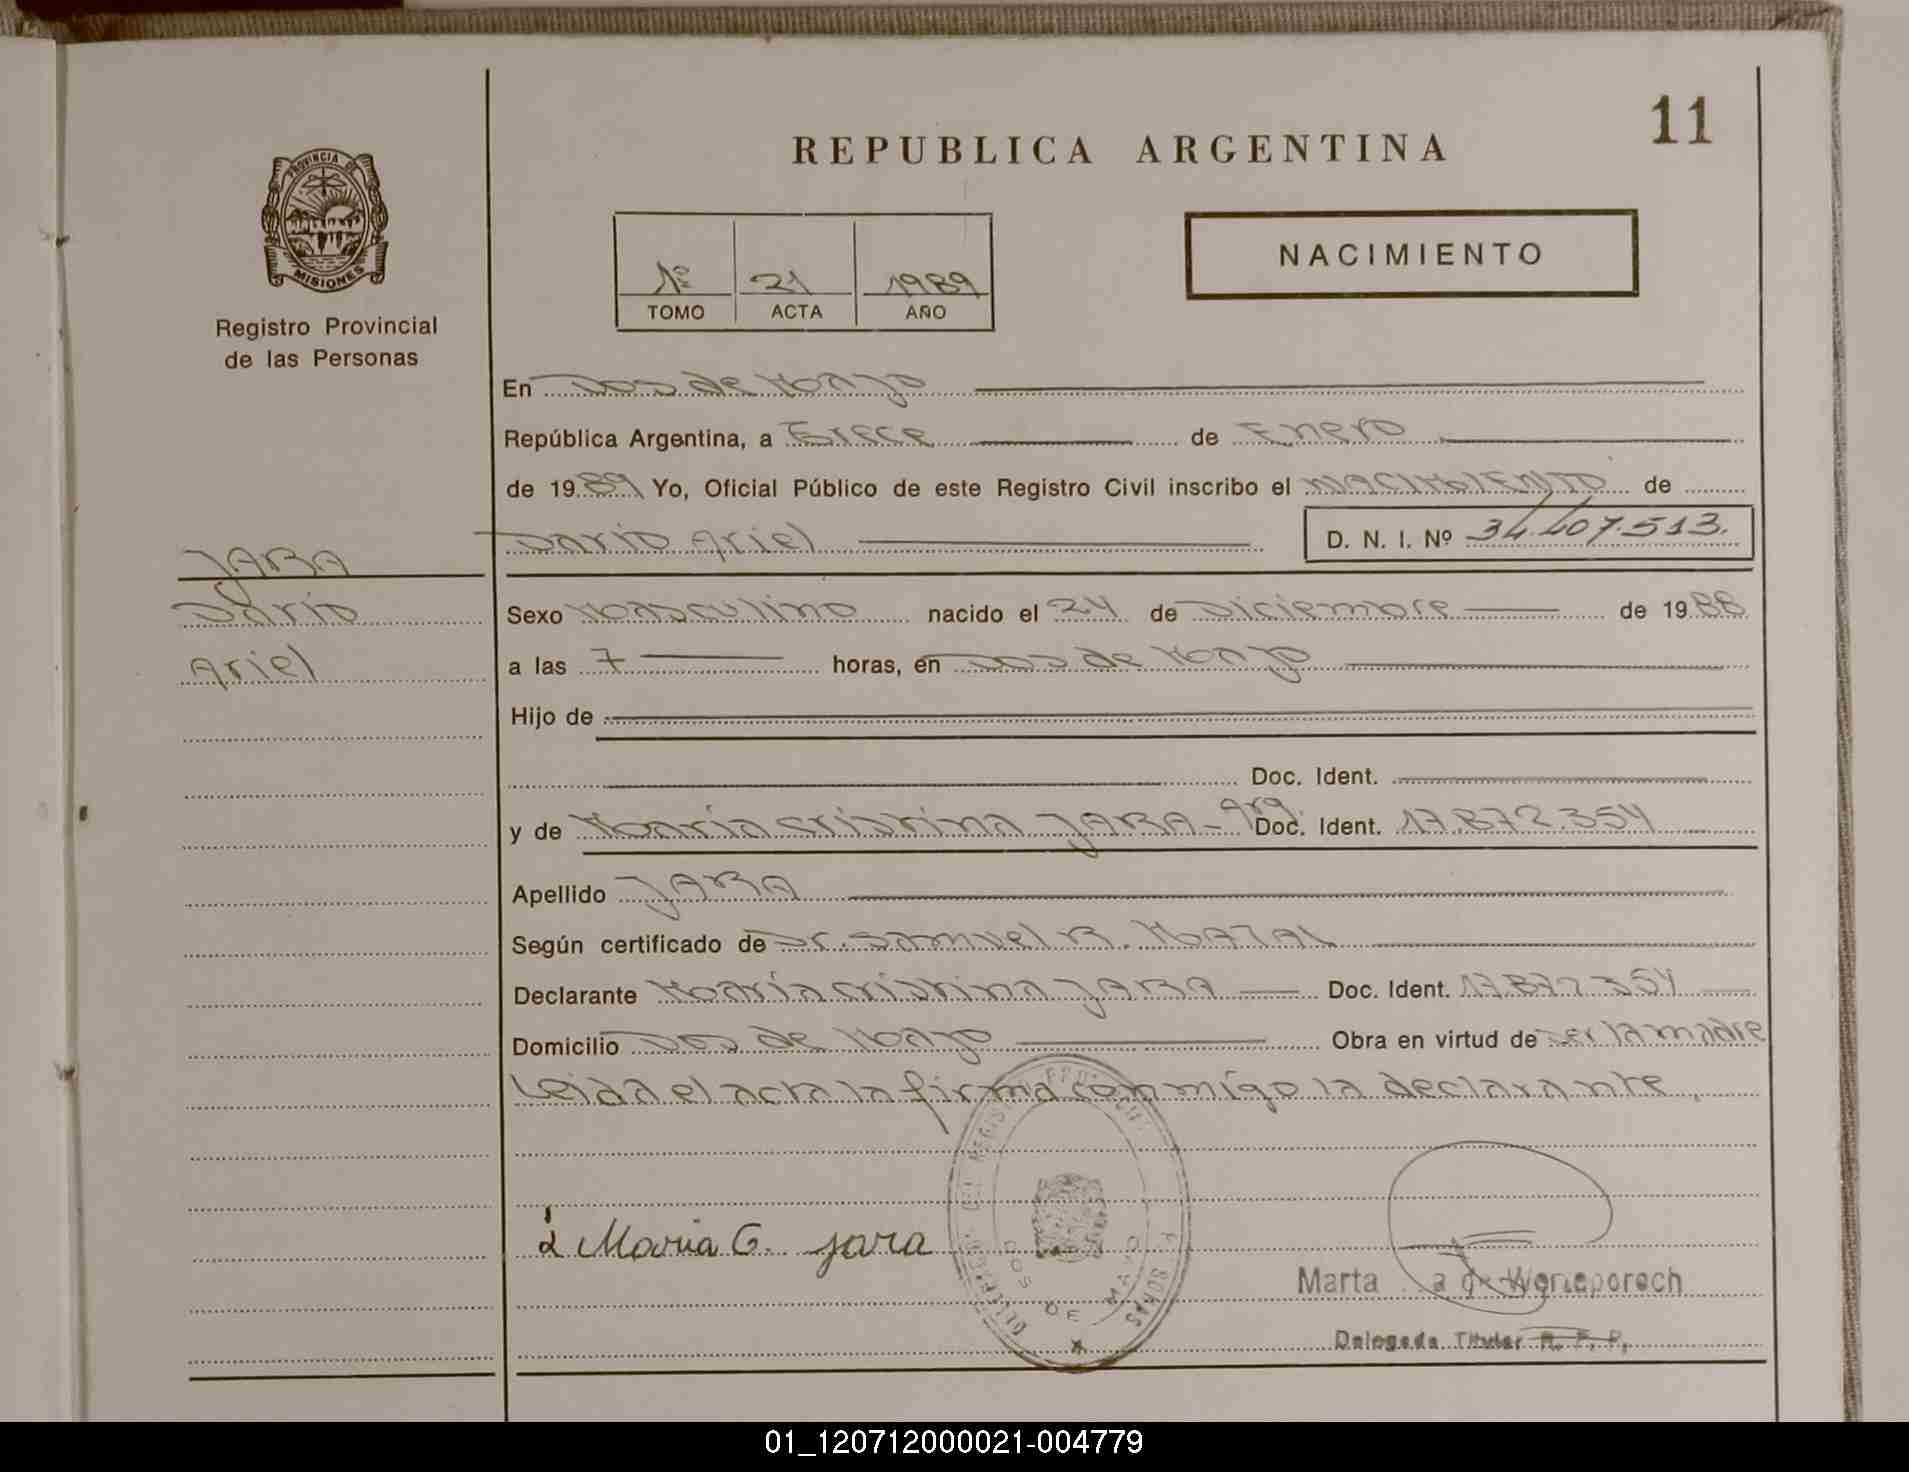 11
REPUBLICA ARGENTINA
PROVINCIA DE
MISIONES
Registro Provincial
de las Personas
1º 21 1989
TOMO ACTA AÑO
NACIMIENTO
En Dos de Mayo
República Argentina, a Trece de Enero
de 1989 Yo, Oficial Público de este Registro Civil inscribo el NACIMIENTO de
Dario Ariel D. N. I. Nº 34.407.513.
JARA
Dario
Ariel
Sexo Masculino nacido el 24 de Diciembre de 1988
a las 7 horas, en Dos de Mayo
Hijo de
Doc. Ident.
y de Maria Cristina JARA - Arg. Doc. Ident. 17.872.354
Apellido JARA
Según certificado de Dr. Samuel R.
Declarante Maria Cristina JARA Doc. Ident. 17.872.354
Domicilio Dos de Mayo Obra en virtud de ser la madre
Leida el acta la firma conmigo la declarante.
Maria C. jara
DOS DE MAYO
Marta
Delegada Titular R. P. P.
01_120712000021-004779